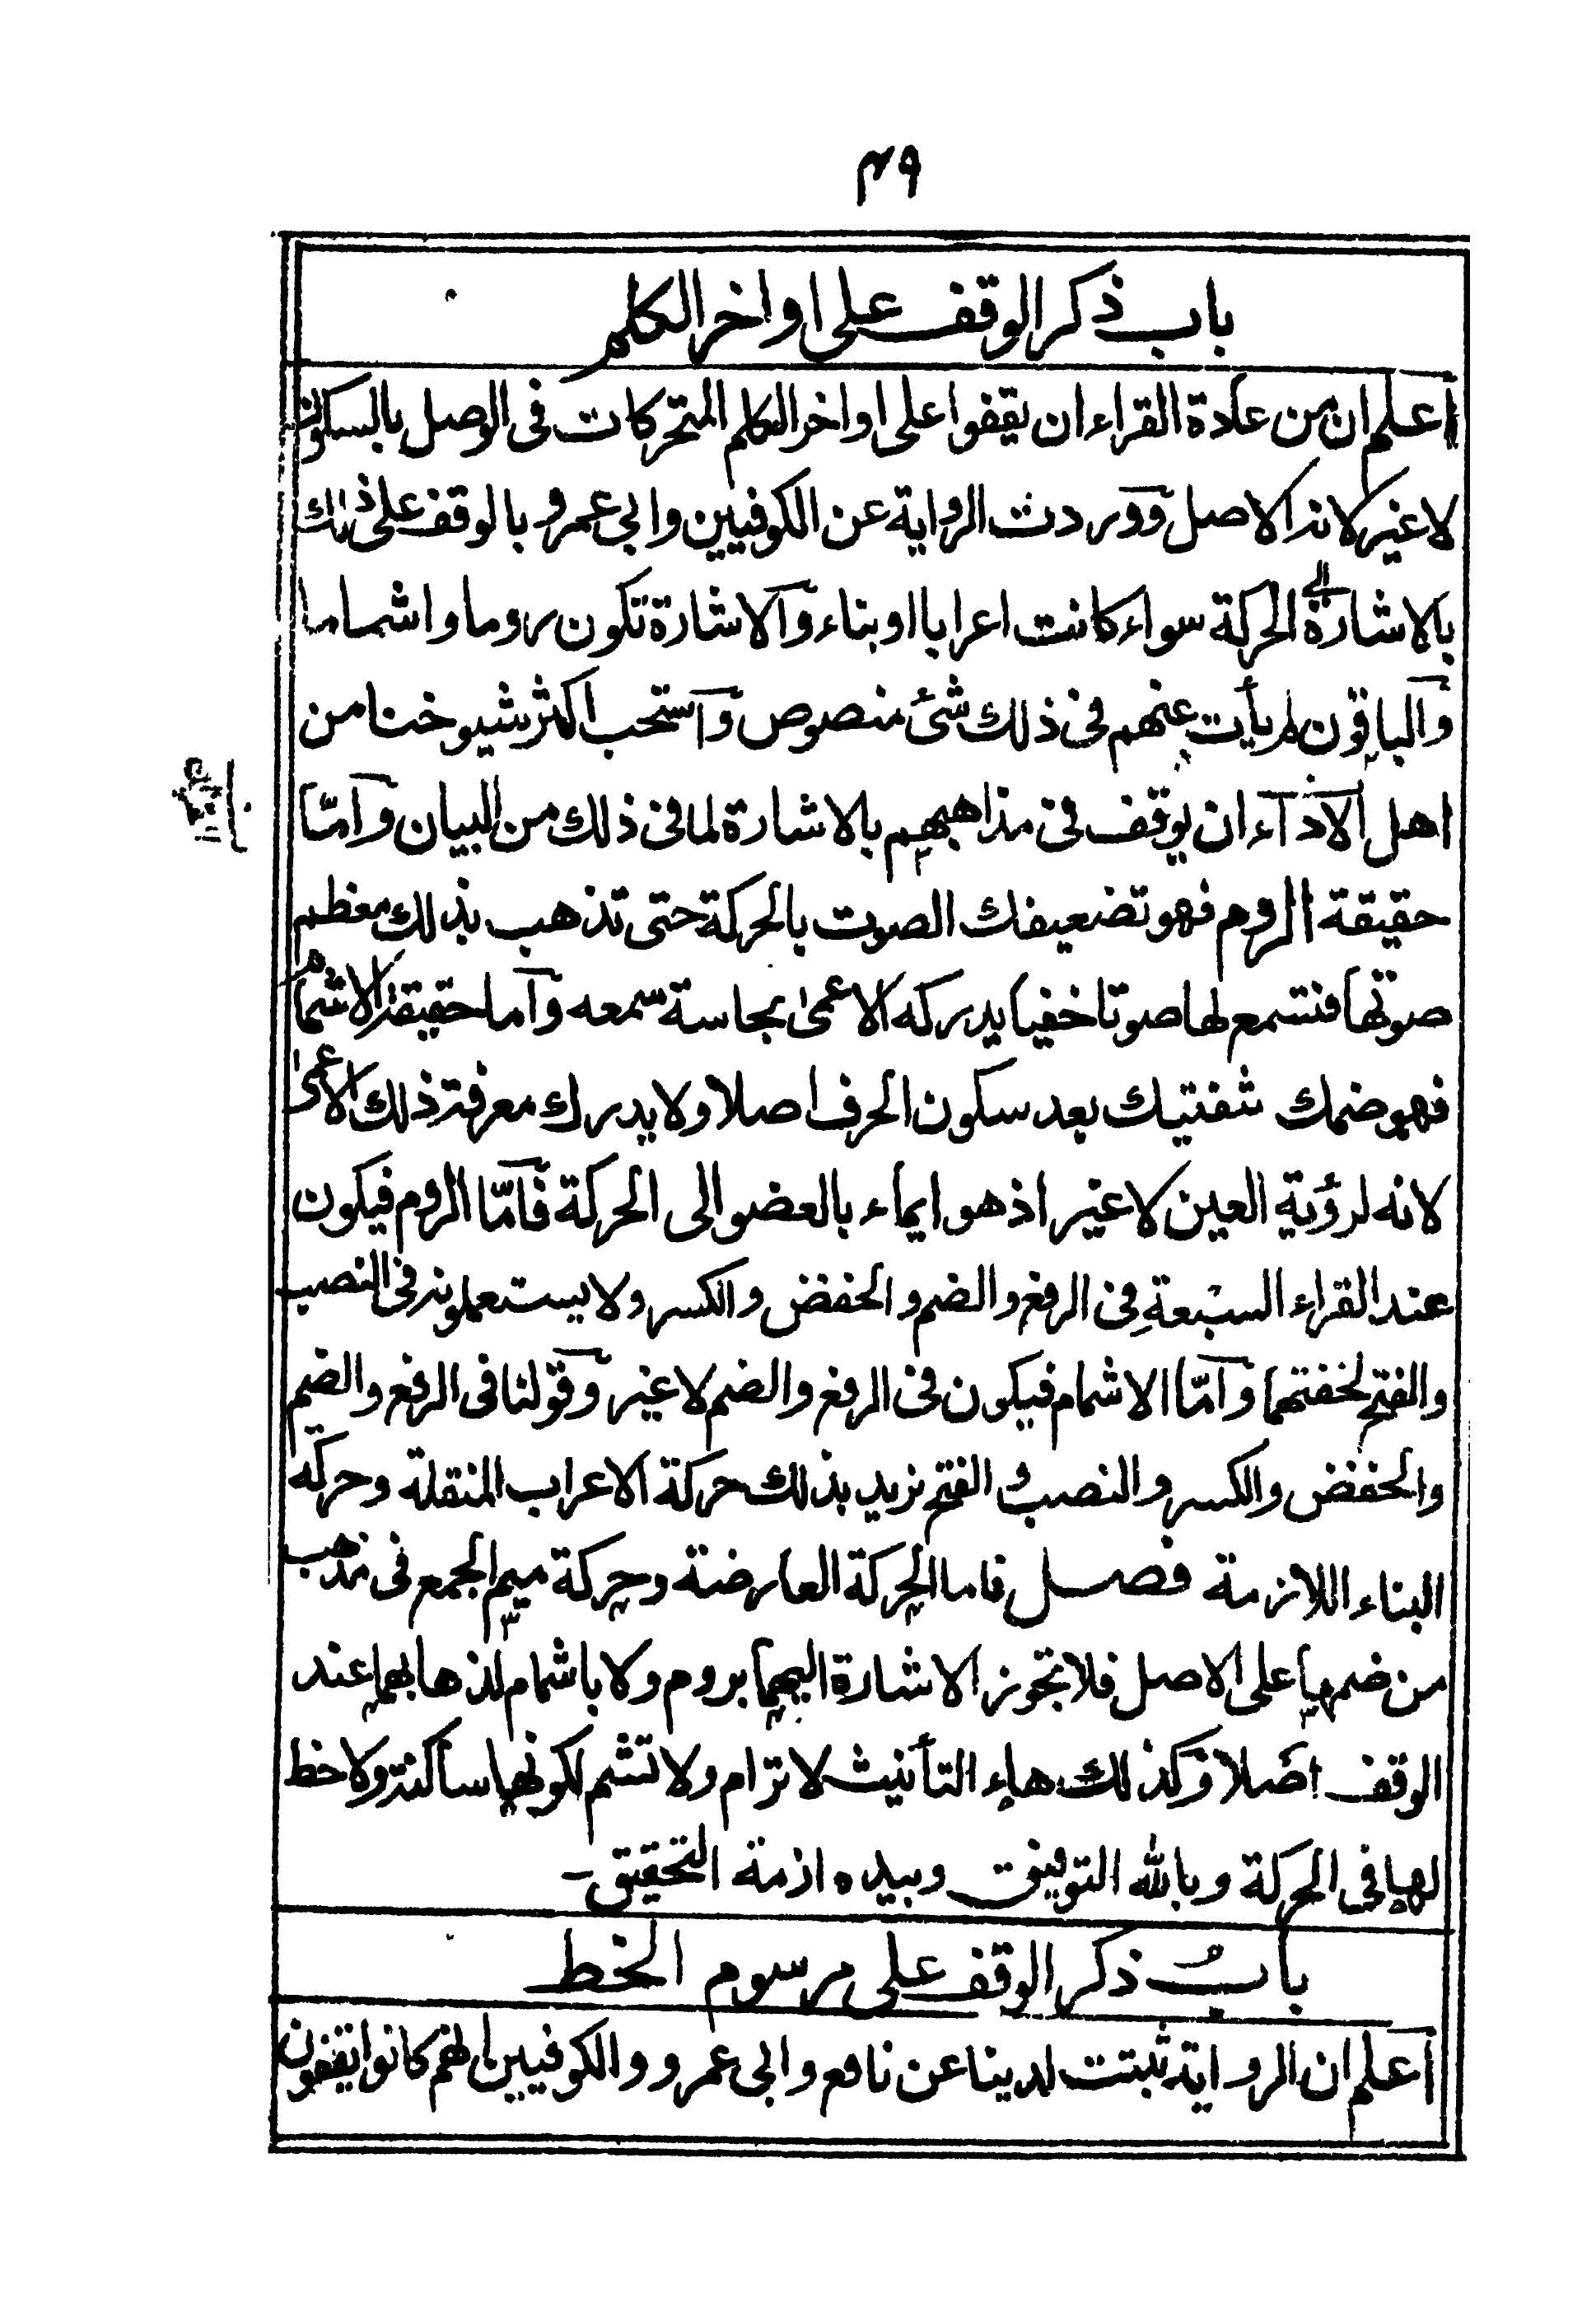 ٤٩
باب ذكر الوقف على اواخر الكلم
اعلم ان من عادة القراء ان يقفوا على اواخر الكلم المتحركات فى الوصل بالسكون
لا غير لانه الاصل ووردت الرواية عن الكوفيين وابى عمرو بالوقف على ذلك
بالاشارة الى الحركة سواء كانت اعرابا او بناء والاشارة تكون روما واشماما
والباقون لم يأت عنهم فى ذلك شئ منصوص واستحب اكثر شيوخنا من
اهل الاداء ان يوقف فى مذاهبهم بالاشارة لما فى ذلك من البيان وامّا
حقيقة الروم فهو تضعيفك الصوت بالحركة حتى تذهب بذلك معظم
صوتها فتسمع لها صوتا خفيا يدركه الاعمى بحاسة سمعه واما حقيقة الاشمام
فهو ضمك شفتيك بعد سكون الحرف اصلا ولا يدرك معرفة ذلك الاعمى
لانه لرؤية العين لا غير اذ هو ايماء بالعضو الى الحركة فامّا الروم فيكون
عند القراء السبعة فى الرفع والضم والخفض والكسر ولا يستعملونه فى النصب
والفتح لخفتهما وامّا الاشمام فيكون فى الرفع والضم لا غير وقولنا فى الرفع والضم
والخفض والكسر والنصب و الفتح نريد بذلك حركة الاعراب المنتقلة وحركة
البناء اللازمة فصل فاما الحركة العارضة وحركة ميم الجمع فى مذهب
من ضمها على الاصل فلا تجوز الاشارة اليهما بروم ولا باشمام لذهابهما عند
الوقف اصلا وكذلك هاء التأنيث لا ترام ولا تشم لكونها ساكنة ولا حظ
لها فى الحركة وبالله التوفيق وبيده ازمة التحقيق-
باب ذكر الوقف على مرسوم الخط
اعلم ان الرواية ثبتت لدينا عن نافع وابى عمرو والكوفيين انهم كانوا يقفون